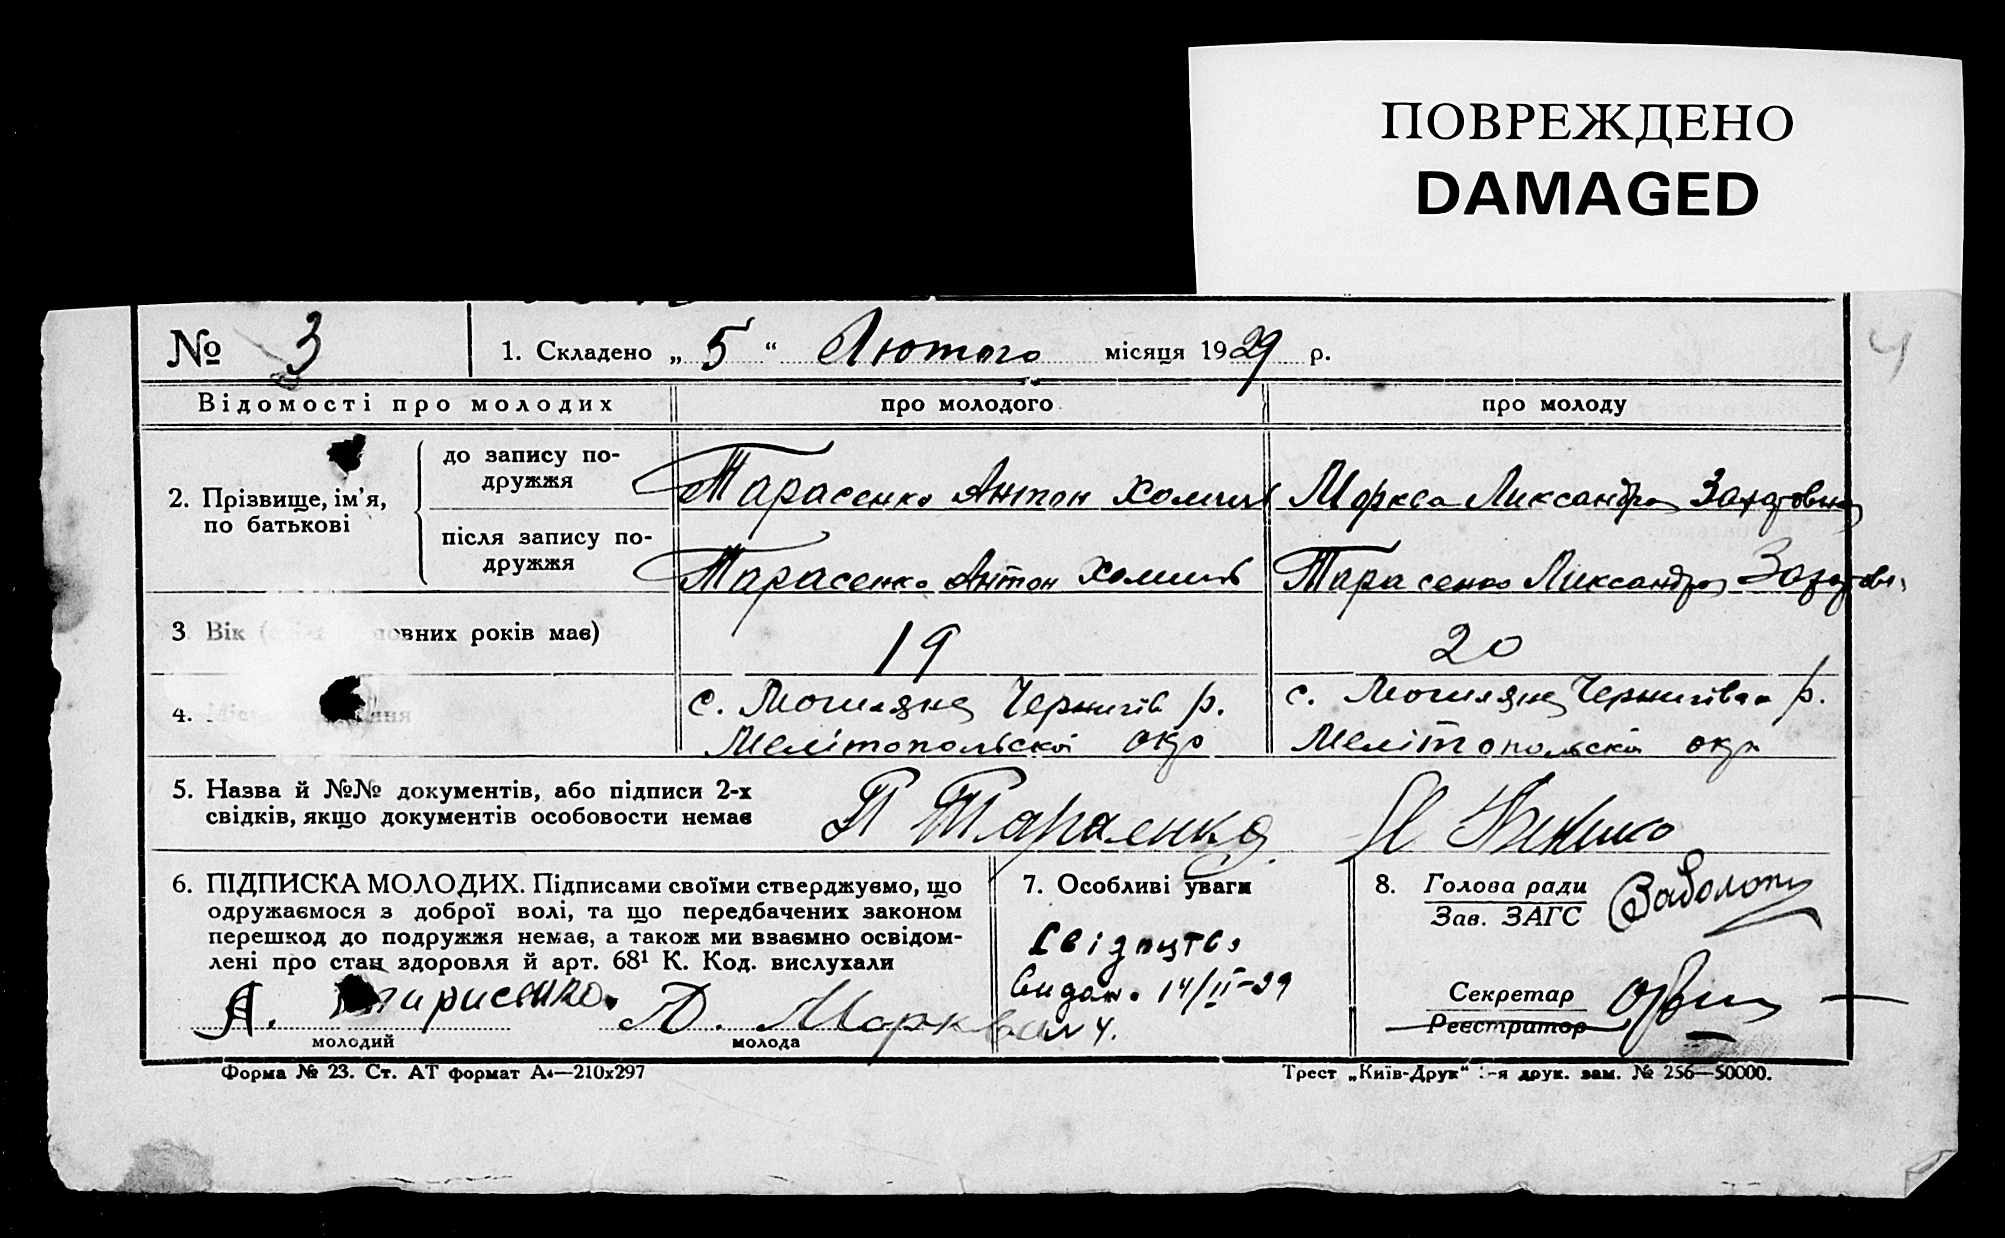 ПОВРЕЖДЕНО
DAMAGED
4
№ 3
1. Складено „ 5 “ Лютого місяця 1929 р.
Відомості про молодих
про молодого
про молоду
2. Прізвище, ім’я,
по батькові
до запису по-
дружжя
Тарасенко Антон Хомич
Морква Ликсандра
після запису по-
дружжя
Тарасенко Антон Хомич
Тарасенко Ликсандра
3. Вік повних років має)
19
20
4.
с. Могиляни Чернигів р.
Мелітопольскої окр
с. Могиляни р.
Мелітопольскої окр
5. Назва й №№ документів, або підписи 2-х
свідків, якщо документів особовости немає
П Тарасенко
6. ПІДПИСКА МОЛОДИХ. Підписами своїми стверджуємо, що
одружаємося з доброї волі, та що передбачених законом
перешкод до подружжя немає, а також ми взаємно освідом-
лені про стан здоровля й арт. 68¹ К. Код. вислухали
А. Тарисенко.
молодий
Л. Морква
молода
7. Особливі уваги
Свідоцтво
видан. 14/II-29
8. Голова ради
Зав. ЗАГС
Секретар
Реєстратор
Форма № 23. Ст. АТ формат А₄—210х297
Трест „Київ-Друк“ -я друк. зам. № 256—50000.